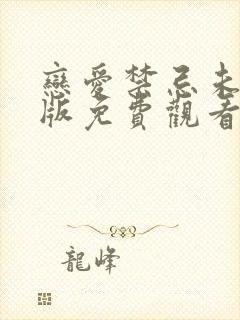 戀愛禁忌未
版免費觀看
龍峰